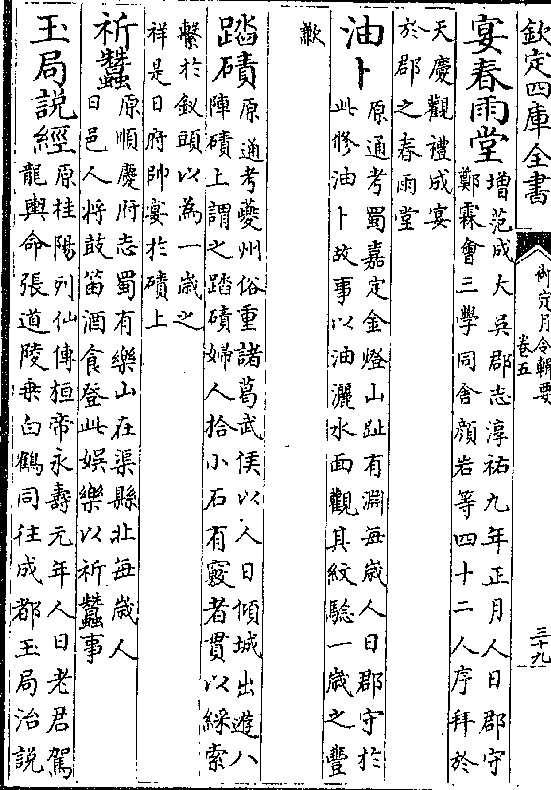 欽定四庫全書
御定月令輯要
卷五
三十九
宴春雨堂
增范成大吳郡志淳祐九年正月人日郡守
鄭霖會三學同舍顔岩等四十二人序拜於
天慶觀禮成宴
於郡之春雨堂
油卜
原通考蜀嘉定金燈山趾有淵每歲人日郡守於
此修油卜故事以油灑水面觀其紋驗一歲之豐
歉
踏磧
原通考夔州俗重諸葛武侯以人日傾城出遊八
陣磧上謂之踏磧婦人拾小石有竅者貫以綵索
繫於釵頭以為一歲之
祥是日府帥宴於磧上
祈蠶
原順慶府志蜀有樂山在渠縣北每歲人
日邑人將鼓笛酒食登此娛樂以祈蠶事
玉局説經
原桂陽列仙傳桓帝永壽元年人日老君駕
龍輿命張道陵乗白鶴同往成都玉局治説